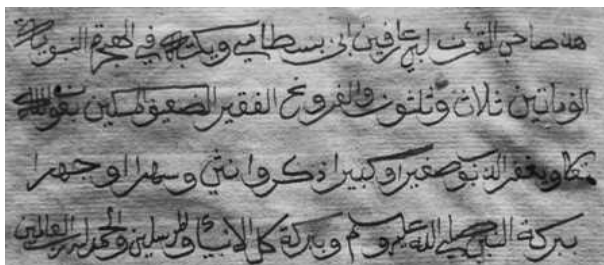 هذه صاحب القرءت لبي عارفين الى بسطامي ويكتبه في الهجرة النبوية
الف ماتين ثلاث وثلثون والفرونح الفقير الضعيف المسكين بقو الله
تعا ويغفر الذنوب صغيرا وكبيرا ذكر وانثي وسهرا وجهرا
ببركة النبي صلي الله عليه وسلم وببركة كل الانبيا والمرسلين والحمد لله رب العالمين